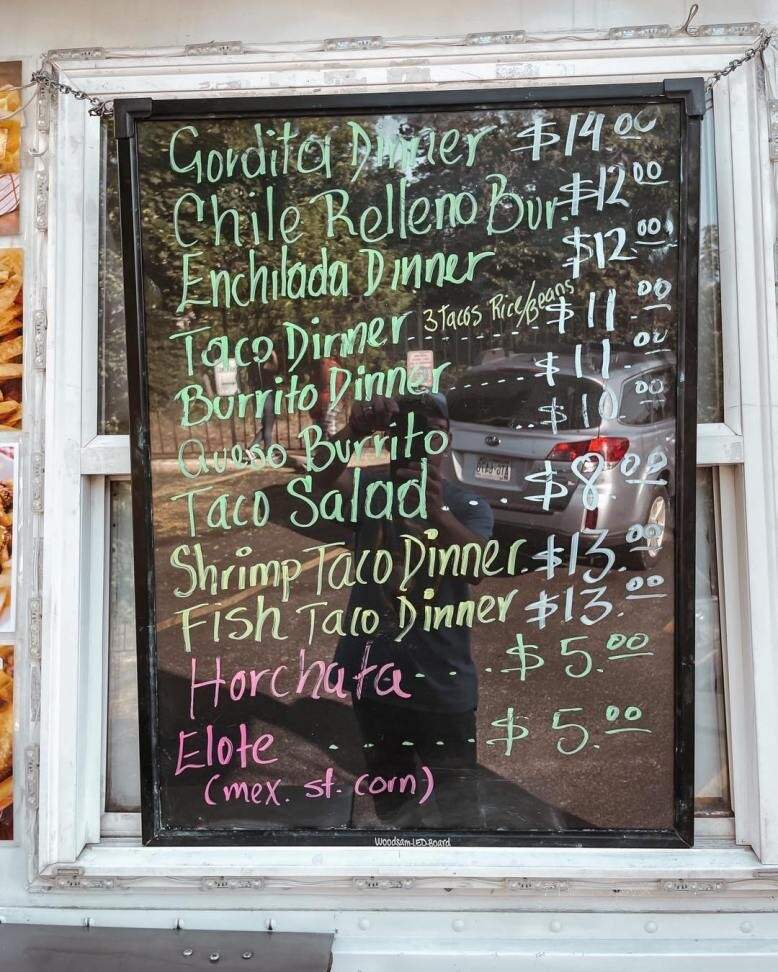 Gordita Dinner $14.00
Chile Relleno Bur. $12.00
Enchilada Dinner $12.00
Taco Dinner 3 Tacos Rice/Beans $11.00
Burrito Dinner $11.00
Queso Burrito $10.00
Taco Salad $8.00
Shrimp Taco Dinner. $13.00
Fish Taco Dinner $13.00
Horchata $5.00
Elote $5.00
(mex. st. corn)
Woodsam-LED-Board